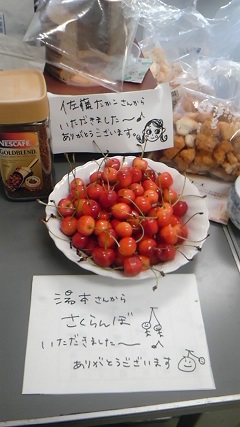 佐藤たかこさんから
いただきました〜
ありがとうございます。
NESCAFÉ
GOLDBLEND
湯本さんから
さくらんぼ
いただきました〜
ありがとうございます